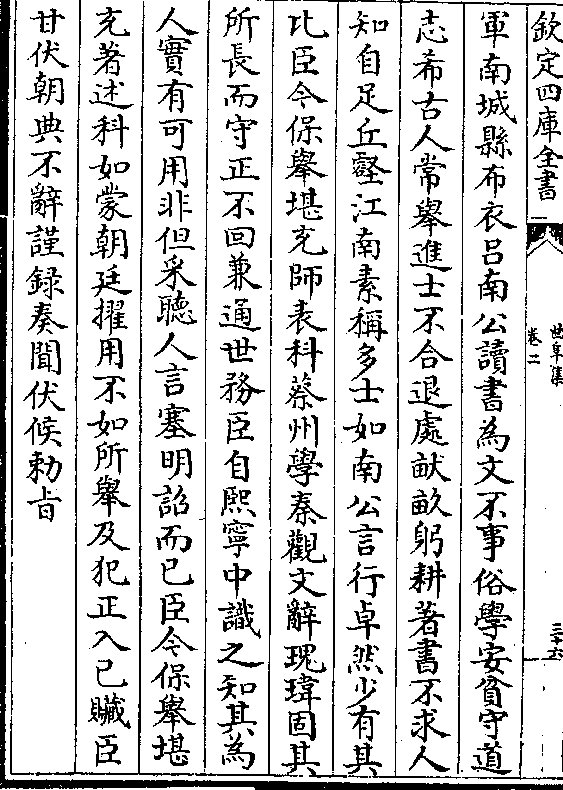 欽定四庫全書
曲阜集
卷二
三十六
軍南城縣布衣吕南公讀書為文不事俗學安貧守道
志希古人常舉進士不合退處畎畝躬耕著書不求人
知自足丘壑江南素稱多士如南公言行卓然少有其
比臣今保舉堪充師表科蔡州學秦觀文辭瑰瑋固其
所長而守正不回兼通世務臣自熙寧中識之知其為
人實有可用非但采聽人言塞明詔而已臣今保舉堪
充著述科如蒙朝廷擢用不如所舉及犯正入已贓臣
甘伏朝典不辭謹録奏聞伏候勅旨